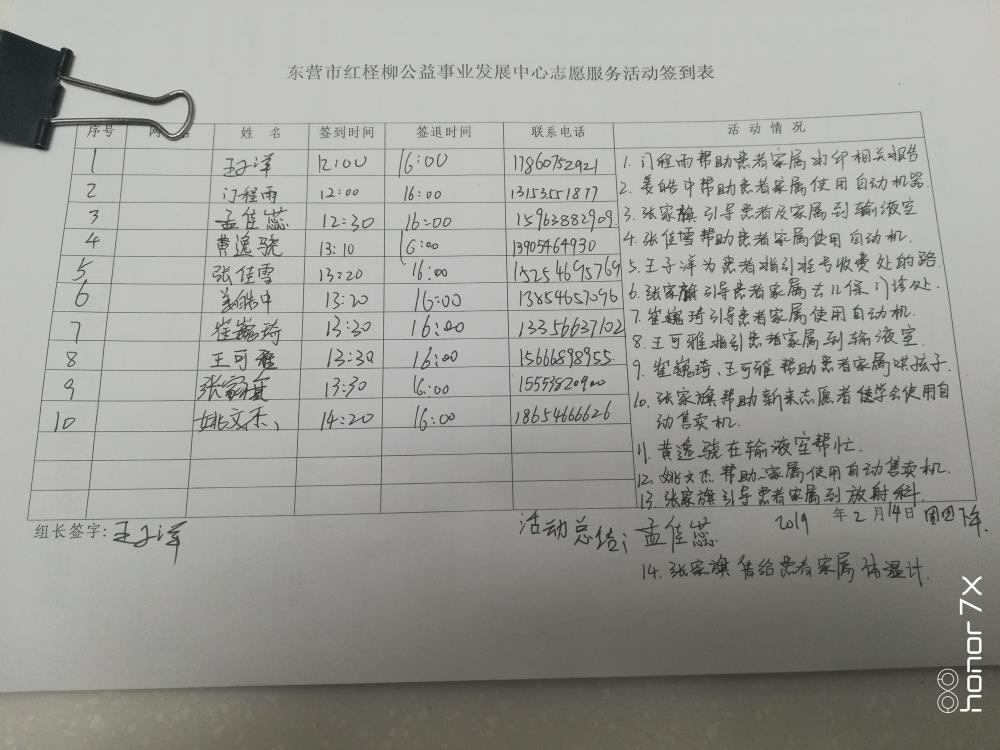 东营市红柽柳公益事业发展中心志愿服务活动签到表
序号 网 名 姓 名 签到时间 签退时间 联系电话 活 动 情 况
1 王子洋 12:00 16:00 17860752921
2 门程雨 12:00 16:00 13153551877
3 孟佳蕊 12:30 16:00 15963882909
4 黄逸骁 13:10 16:00 13905464930
5 张佳雪 13:20 16:00 15254695769
6 姜皓中 13:20 16:00 13854657096
7 崔巍琦 13:30 16:00 13356637102
8 王可雅 13:30 16:00 15666898955
9 张家旗 13:30 16:00 15553820900
10 姚文杰 14:20 16:00 18654666626
1. 门程雨帮助患者家属打印相关报告
2. 姜皓中帮助患者家属使用自动机器.
3. 张家旗引导患者及家属到输液室
4. 张佳雪帮助患者家属使用自动机.
5. 王子洋为患者指引挂号收费处的路.
6. 张家旗引导患者家属去儿保门诊处.
7. 崔巍琦引导患者家属使用自动机.
8. 王可雅指引患者家属到输液室.
9. 崔巍琦、王可雅帮助患者家属哄孩子
10. 张家旗帮助新来志愿者学会使用自
动售卖机.
11. 黄逸骁在输液室帮忙.
12. 姚文杰帮助家属使用自动售卖机.
13. 张家旗引导患者家属到放射科.
组长签字: 王子洋 活动总结: 孟佳蕊 2019 年 2 月 14 日 周四下午.
14. 张家旗售给患者家属体温计.
honor 7X